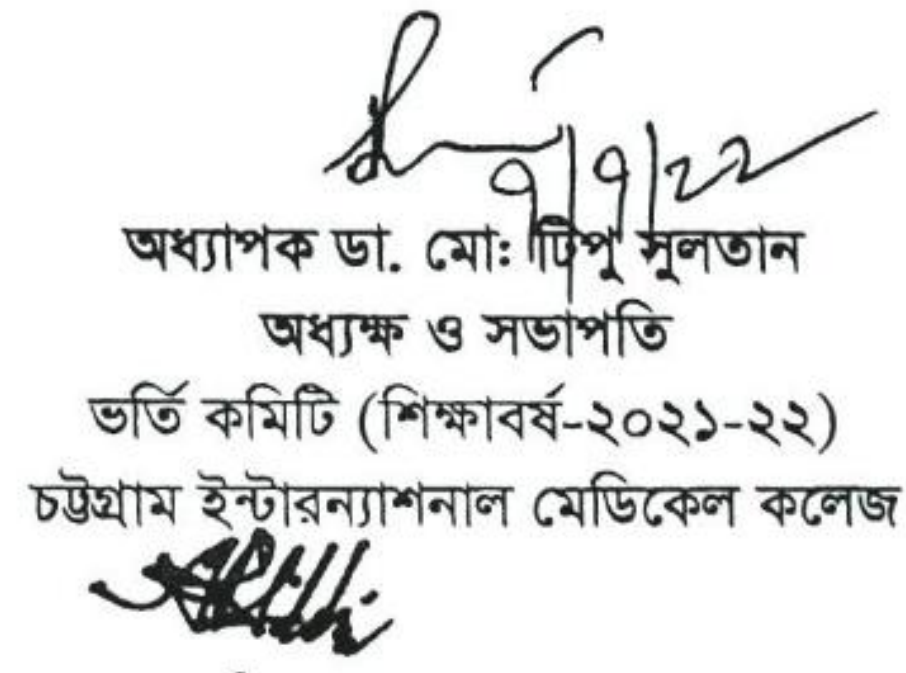 ৭/৭/২২
অধ্যাপক ডা. মো: টিপু সুলতান
অধ্যক্ষ ও সভাপতি
ভর্তি কমিটি (শিক্ষাবর্ষ-২০২১-২২)
চট্টগ্রাম ইন্টারন্যাশনাল মেডিকেল কলেজ